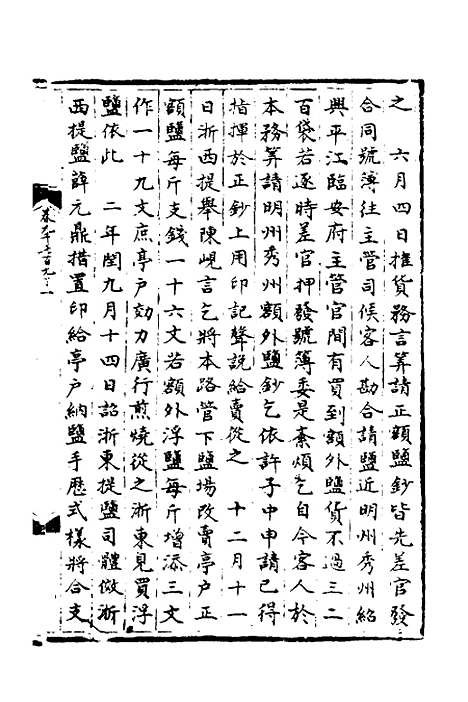 之　六月四日榷貨務言筭請正額鹽鈔皆先差官發
合同號簿往主管司候客人勘合請鹽近明州秀州紹
興平江臨安府主管官間有買到額外鹽貨不過三二
百袋若逐時差官押發號簿委是紊煩乞自今客人於
本務筭請明州秀州額外鹽鈔乞依許子中申請已得
指揮於正鈔上用印記聲說給賣從之　十二月十一
日浙西提舉陳峴言乞將本路管下鹽場改賣亭戶正
額鹽每斤支錢一十六文若額外浮鹽每斤增添三文
作一十九文庶亭戶効力廣行煎燒從之浙東見買浮
鹽依此　二年閏九月十四日詔浙東提鹽司體倣浙
西提鹽薛元鼎措置印給亭戶納鹽手歷式樣將合支